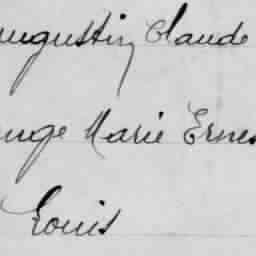 ugustin Claude
nge Marie Ernes
Louis